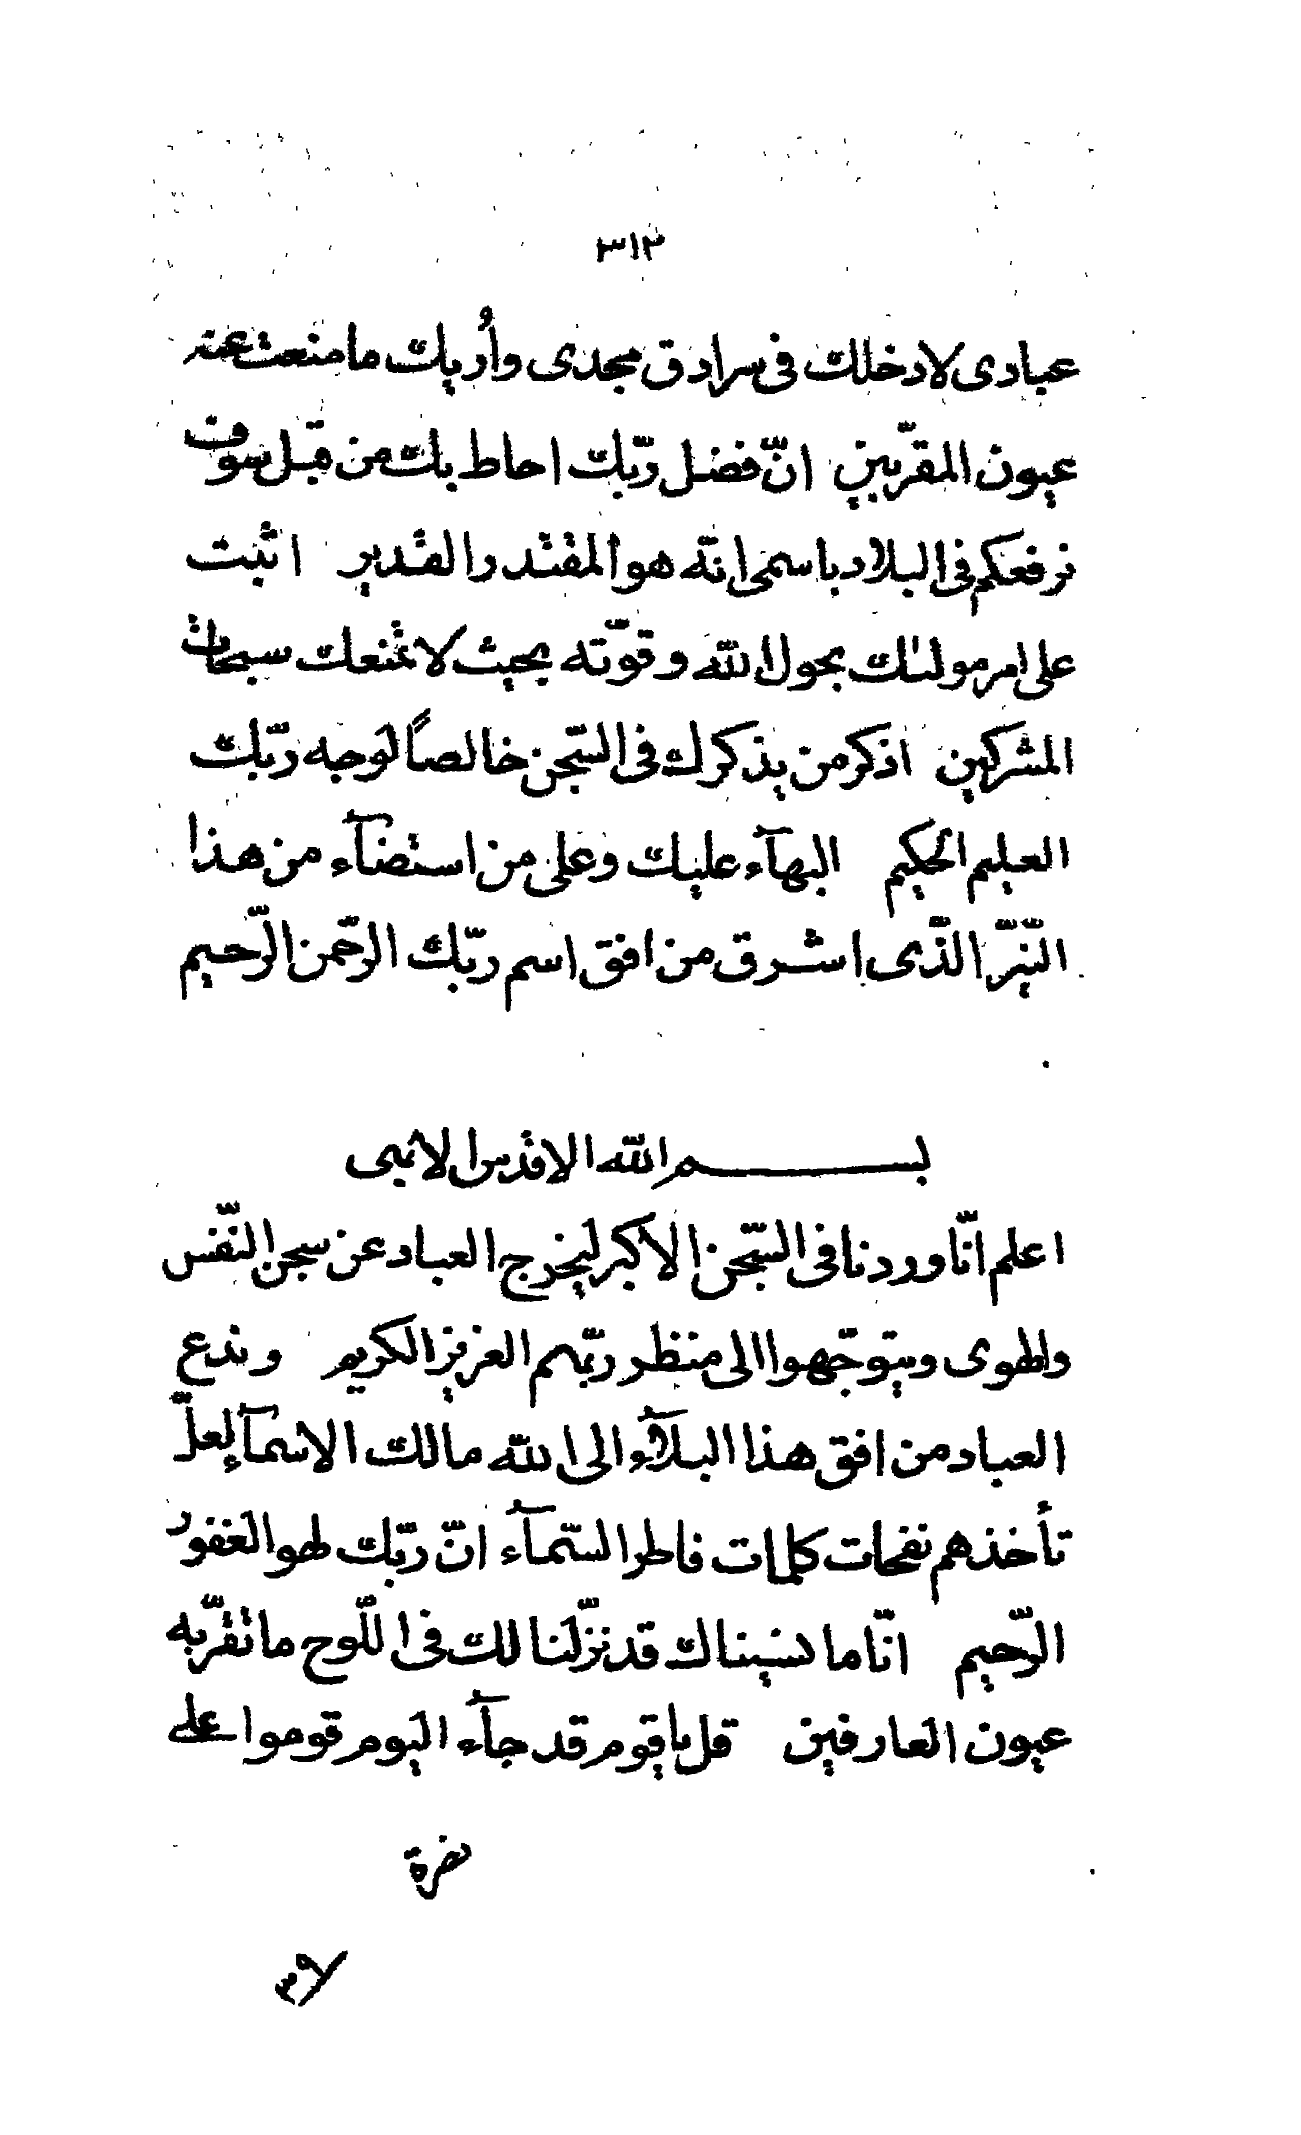 ٣١٢
عبادى لادخلك فى سرادق مجدى وأريك ما منعت عنه
عيون المقرّبين انّ فضل ربّك احاط بك من قبل سوف
نرفعكم فى البلاد باسمى انّه هو المقتدر القدير اثبت
على امر مولىك بحول الله و قوّته بحيث لا تمنعك سبحات
المشركين اذكر من يذكرك فى السّجن خالصاً لوجه ربّك
العليم الحكيم البهآء عليك وعلى من استضآء من هذا
النّيّر الّذى اشرق من افق اسم ربّك الرّحمن الرّحيم
بسم الله الاقدس الابهى
اعلم انّا وردنا فى السّجن الاكبر ليخرج العباد عن سجن النّفس
والهوى ويتوجّهوا الى منظر ربّهم العزيز الكريم وندع
العباد من افق هذا البلآء الى الله مالك الاسمآء لعلّ
تأخذهم نفحات كلمات فاطر السّمآء انّ ربّك لهو الغفور
الرّحيم انّا ما نسيناك قد نزّلنا لك فى اللّوح ما تقرّ به
عيون العارفين قل يا قوم قد جآء اليوم قوموا على
نصرة